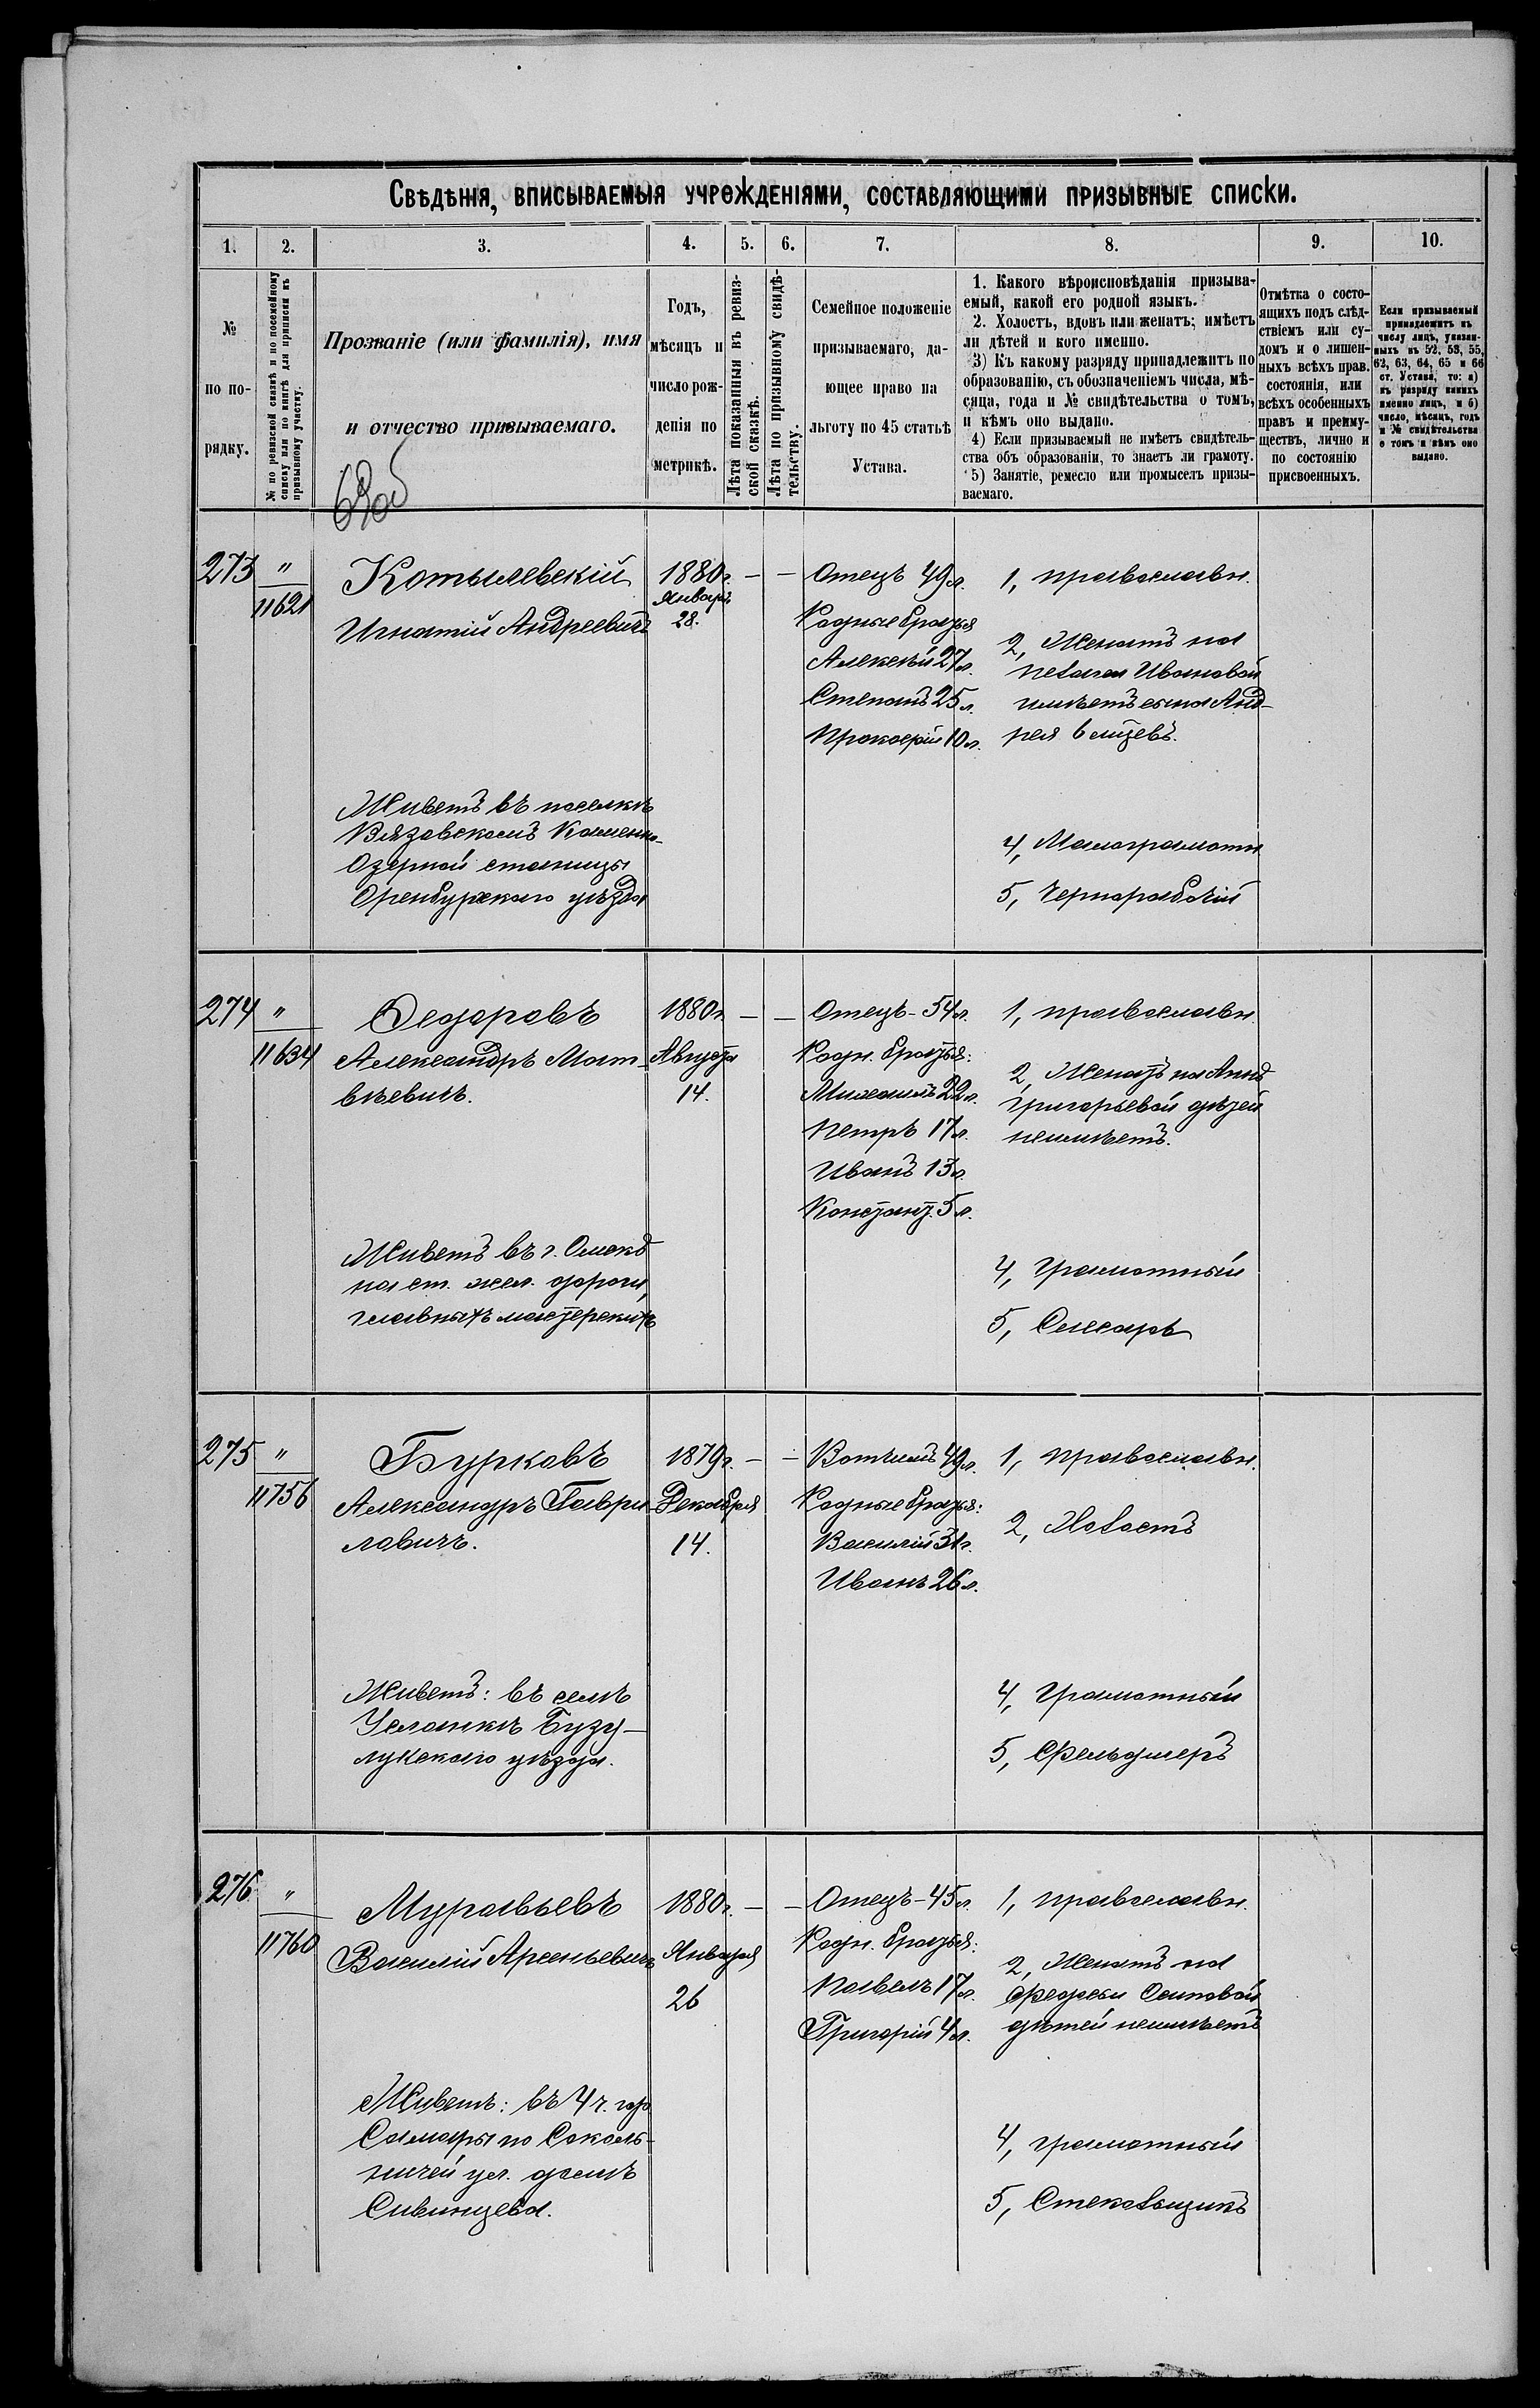 Свѣдѣнія, вписываемыя учрежденіями, составляющими призывные списки.
1. 2. 3. 4. 5. 6. 7. 8. 9. 10.
№
по по-
рядку.
№ по ревизской сказкѣ и по посемейному
списку или по книгѣ для приписки къ
призывному участку.
Прозваніе (или фамилія), имя
и отчество призываемаго.
69об
Годъ,
мѣсяцъ и
число рож-
денія по
метрикѣ.
Лѣта показанныя въ ревиз-
ской сказкѣ.
Лѣта по призывному свидѣ-
тельству.
Семейное положеніе
призываемаго, да-
ющее право на
льготу по 45 статьѣ
Устава.
1. Какого вѣроисповѣданія призыва-
емый, какой его родной языкъ.
2. Холостъ, вдовъ или женатъ; имѣетъ
ли дѣтей и кого именно.
3) Къ какому разряду принадлежитъ по
образованію, съ обозначеніемъ числа, мѣ-
сяца, года и № свидѣтельства о томъ,
и кѣмъ оно выдано.
4) Если призываемый не имѣетъ свидѣтель-
ства объ образованіи, то знаетъ ли грамоту.
5) Занятіе, ремесло или промыселъ призы-
ваемаго.
Отмѣтка о состо-
ящихъ подъ слѣд-
ствіемъ или су-
домъ и о лишен-
ныхъ всѣхъ прав.
состоянія, или
всѣхъ особенныхъ
правъ и преиму-
ществъ, лично и
по состоянію
присвоенныхъ.
Если призываемый
принадлежитъ къ
числу лицъ, указан-
ныхъ въ 52, 53, 55,
62, 63, 64, 65 и 66
ст. Устава, то: а)
къ разряду какихъ
именно лицъ, и б)
число, мѣсяцъ, годъ
и № свидѣтельства
о томъ и кѣмъ оно
выдано.
273 "
11621
Котылевскій
Игнатій Андреевичъ
Живетъ въ поселкѣ
Вязовскомъ Каменно-
Озерной станицы
Оренбургскаго уѣзда
1880г.
Январь
28.
— —
Отецъ 49л.
Родные братья
Алексѣй 27л.
Степанъ 25л.
Прокофій 10л.
1, православн.
2, Женатъ на
Пелагеи Ивановой
имѣетъ сына Анд-
рея 6 мѣсяцевъ.
4, Малограмотн
5, Чернорабочій
274 "
11634
Федоровъ
Александръ Мат-
вѣевичъ.
Живетъ въ г. Омскѣ
на ст. жел. дороги,
главныхъ мастерскихъ
1880г
Августа
14.
— —
Отецъ - 54л.
Родн. братья:
Михаилъ 22л.
Петръ 17л.
Иванъ 13л.
Констант. 5л.
1, православн.
2, Женатъ на Аннѣ
Григорьевой дѣтей
неимѣетъ.
4, Грамотный
5, Слесарь
275 "
11756
Бурковъ
Александръ Гаври-
ловичъ.
Живетъ: въ селѣ
Усманкѣ Бузу-
лукскаго уѣзда.
1879г.
Декабря
14.
— —
Вотчимъ 49л.
Родные братья:
Василій 31г.
Иванъ 26л.
1, православн.
2, Холостъ
4, Грамотный
5, Фельдшеръ
276 "
11760
Муравьевъ
Василій Арсеньевичъ
Живетъ: въ 4 ч. гор.
Самары по Соколь-
ничей ул. домъ
Сивинцева.
1880г.
Января
26
— —
Отецъ - 45л.
Родн. братья:
Павелъ 17л.
Григорій 4л.
1, православн.
2, Женатъ на
Федосьи Осиповой
дѣтей неимѣетъ
4, грамотный
5, Стекольщикъ